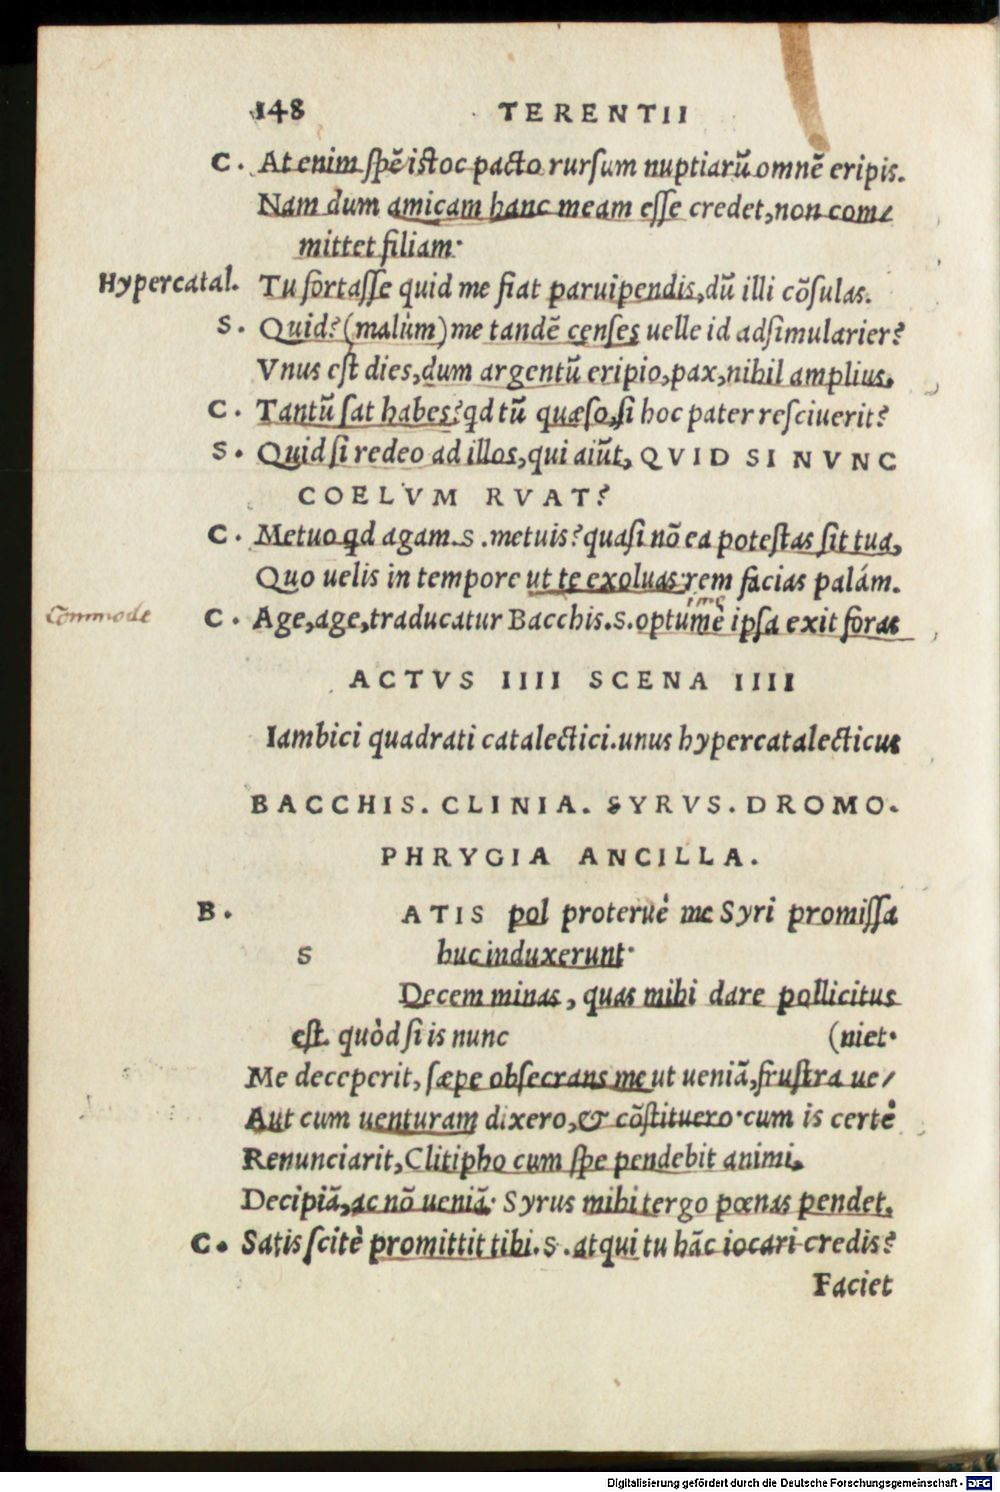 148 TERENTII
C. At enim ſpẽ iſtoc pacto rurſum nuptiarũ omnẽ eripis.
Nam dum amicam hanc meam eſſe credet, non com/
mittet filiam·
Hypercatal. Tu fortaſſe quid me fiat paruipendis, dũ illi cõſulas.
S. Quid? (malùm) me tandẽ cenſes uelle id adſimularier?
Vnus eſt dies, dum argentũ eripio, pax, nihil amplius.
C. Tantũ ſat habes? qd tũ quæſo, ſi hoc pater reſciuerit?
S. Quid ſi redeo ad illos, qui aiũt, QVID SI NVNC
COELVM RVAT?
C. Metuo qd agam. S. metuis? quaſi nõ ea poteſtas ſit tua,
Quo uelis in tempore ut te exoluas, rem facias palám.
Commode C. Age, age, traducatur Bacchis. S. optumè ipſa exit foras
ACTVS IIII SCENA IIII
Iambici quadrati catalectici. unus hypercatalecticus
BACCHIS. CLINIA. SYRVS. DROMO.
PHRYGIA ANCILLA.
B. ATIS pol proteruè me Syri promiſſa
S huc induxerunt·
Decem minas, quas mihi dare pollicitus
eſt. quòd ſi is nunc (niet·
Me deceperit, ſæpe obſecrans me ut ueniã, fruſtra ue/
Aut cum uenturam dixero, & cõſtituero· cum is certè
Renunciarit, Clitipho cum ſpe pendebit animi.
Decipiã, ac nõ ueniã· Syrus mihi tergo pœnas pendet.
C. Satis ſcitè promittit tibi. S. atqui tu hãc iocari credis?
Faciet
Digitalisierung gefördert durch die Deutsche Forschungsgemeinschaft - DFG